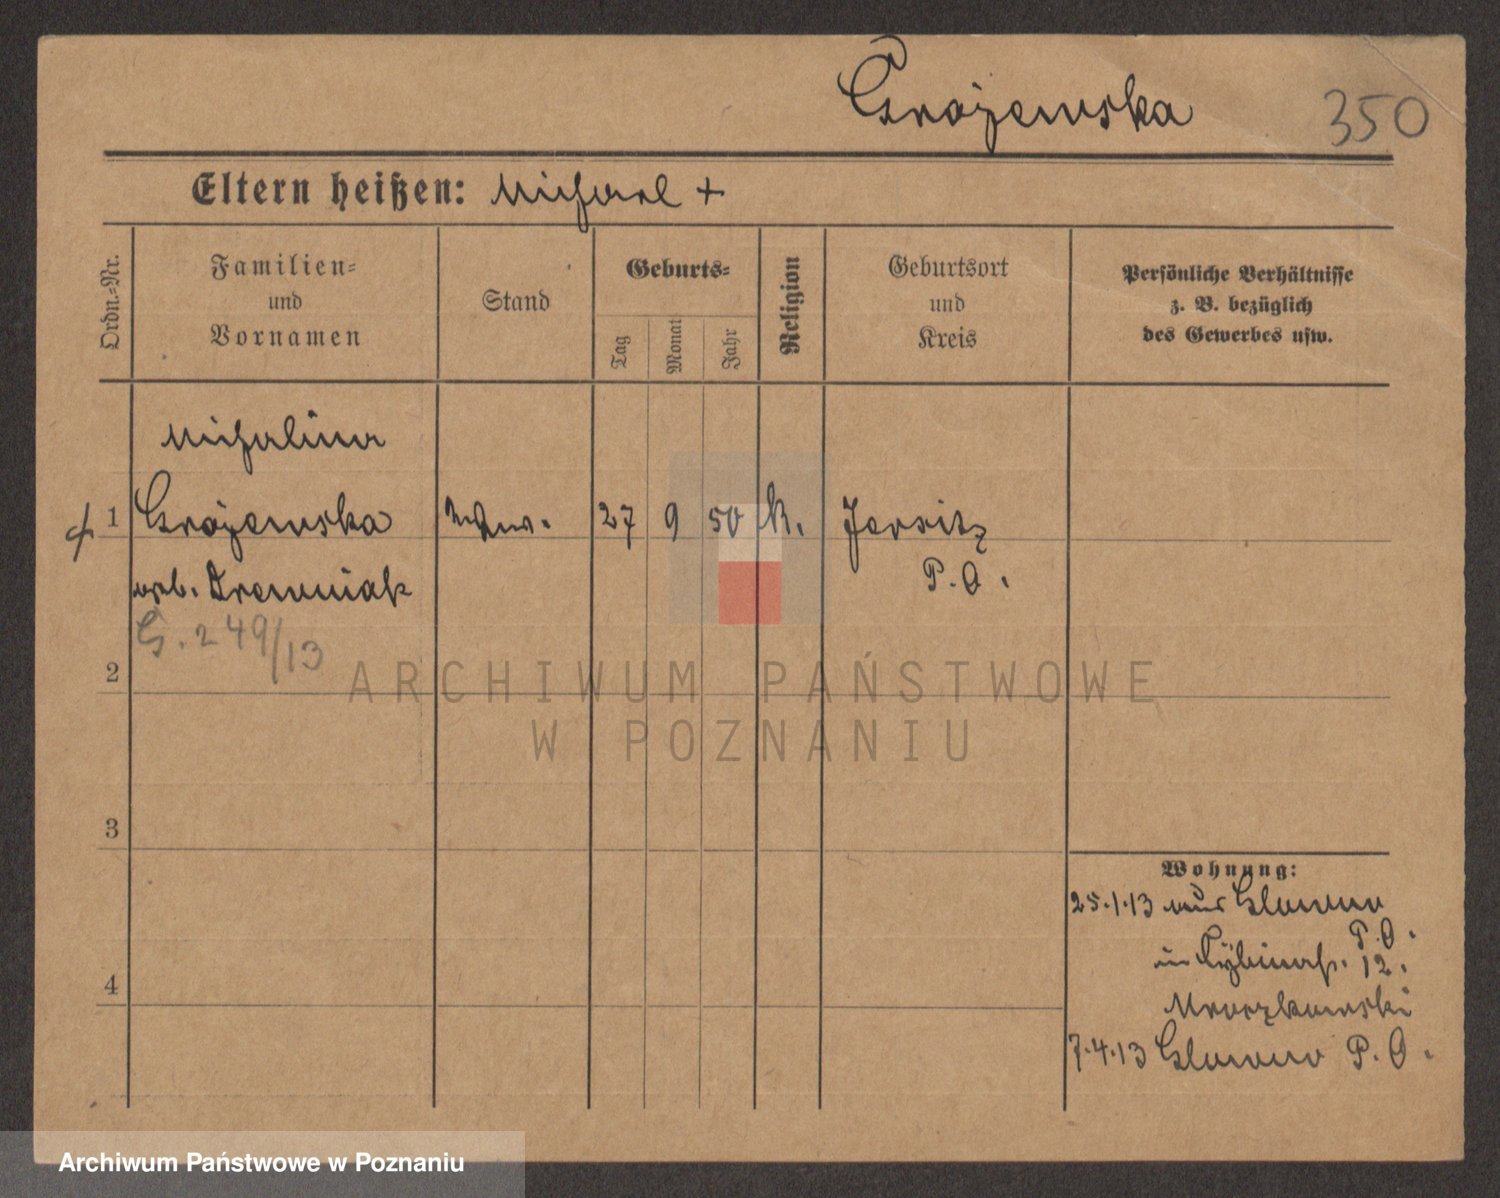 Grazewska 350
Eltern heißen: Michael +
Ordn.-Nr.
Familien-
und
Vornamen
Stand
Geburts-
Tag
Monat
Jahr
Religion
Geburtsort
und
Kreis
Persönliche Verhältnisse
z. B. bezüglich
des Gewerbes usw.
Michalina
1 Grazewska Wwe. 27 9 50 k. Jersitz
geb. Drewniak P. O.
G. 249/13
2
3
4
Wohnung:
25.1.13 aus Glowno
P.O.
in 12.
Mroczkowski
7.4.13 Glowno P. O.
ARCHIWUM PAŃSTWOWE
W POZNANIU
Archiwum Państwowe w Poznaniu